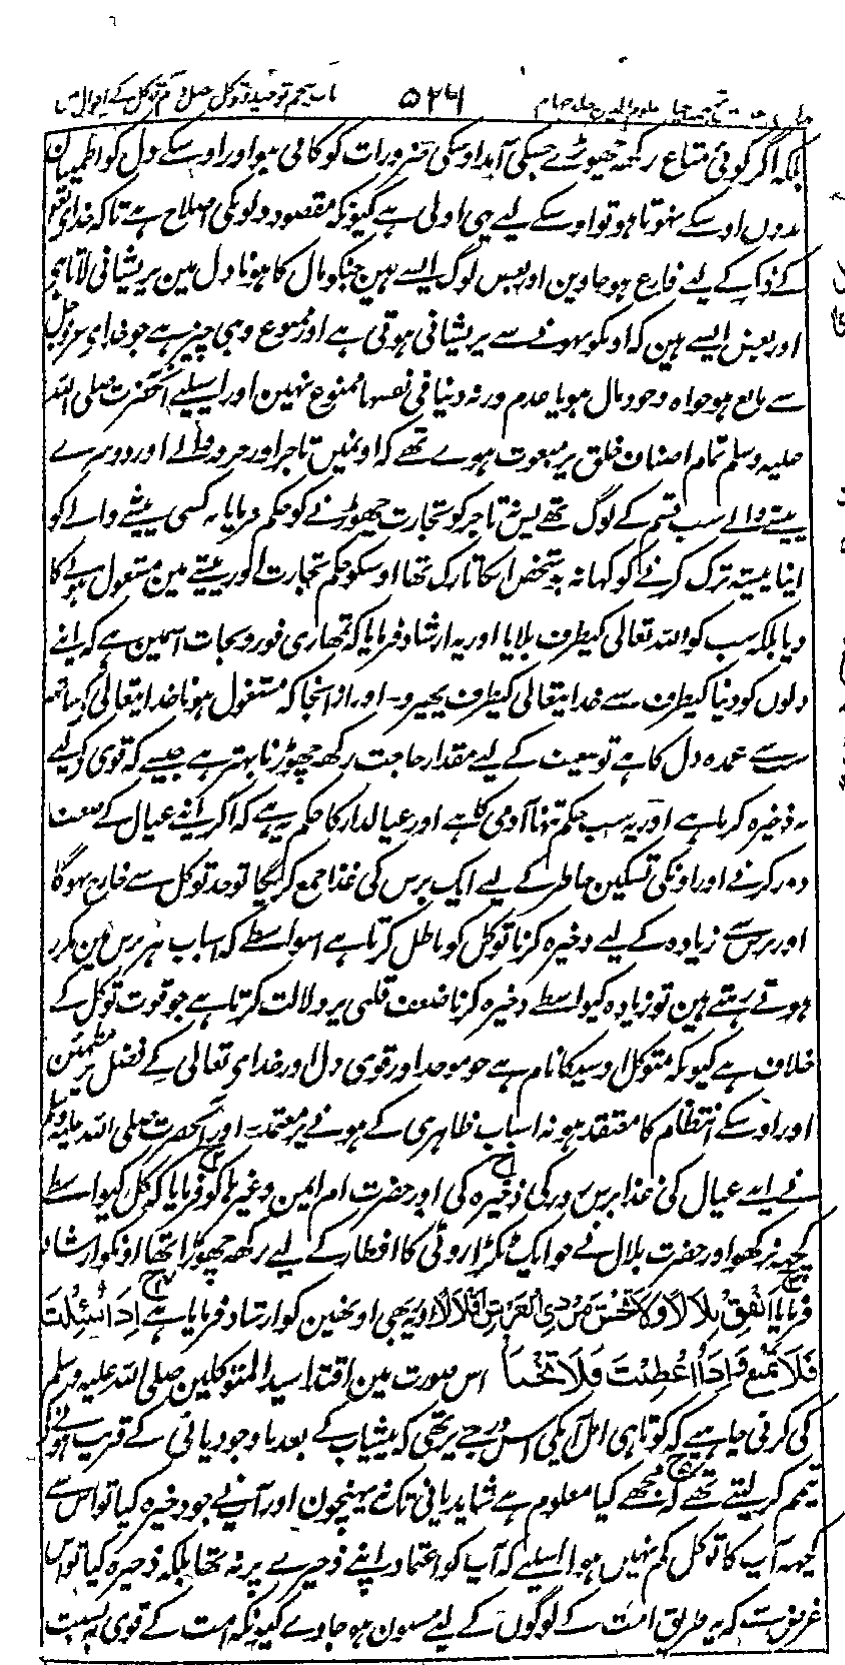 ۵۲۶
بلکہ اگر کوئی متاع رکھہ چھوڑے جسکی آمد اوسکی ضرورات کو کافی ہو اور اوسکے دل کو اطمینان
بدوں اوسکے نہوتا ہو تو اوسکے لیے یہی اولی ہے کیونکہ مقصود دلونکی اصلاح ہے تاکہ خدای تعالی
کے ذکر کے لیے فارغ ہو جاوین اور بعض لوگ ایسے ہین جنکو مال کا ہونا دل مین پریشانی لاتا ہی
اور بعض ایسے ہین کہ اونکو نہونے سے پریشانی ہوتی ہے اور ممنوع وہی چیز ہے جو خدای عزوجل
سے مانع ہو خواہ وجود مال ہو یا عدم ورنہ دنیا فی نفسہا ممنوع نہین اور اسیلیے آنحضرت صلی اللہ
علیہ وسلم تمام اصناف خلق پر مبعوث ہوے تھے کہ اونمیں تاجر اور حرفہ والے اور دوسرے
پیشے والے سب قسم کے لوگ تھے پس نہ تاجر کو تجارت چھوڑنے کو حکم فرمایا نہ کسی پیشے والے کو
اپنا پیشہ ترک کرنے کو کہا نہ جو شخص اسکا تارک تھا اوسکو حکم تجارت اور پیشے مین مشغول ہونے کا
دیا بلکہ سب کو اللہ تعالی کیطرف بلایا اور یہ ارشاد فرمایا کہ تمھاری فوز و نجات اسمین ہے کہ اپنے
دلوں کو دنیا کیطرف سے خدایتعالی کیطرف پھیرو۔ اور ازانجا کہ مشغول ہونا خدایتعالی کے ساتھہ
سب سے عمدہ دل کا ہے تو ضعیف کے لیے مقدار حاجت رکھہ چھوڑنا بہتر ہے جیسے کہ قوی کے لیے
نہ ذخیرہ کرنا ہے اور یہ سب حکم تنہا آدمی کا ہے اور عیالدار کا حکم یہ ہے کہ اگر اپنے عیال کے ضعف
دور کرنے اور اونکی تسکین خاطر کے لیے ایک برس کی غذا جمع کریگا تو حد توکل سے خارج نہوگا
اور برس سے زیادہ کے لیے ذخیرہ کرنا توکل کو باطل کرتا ہے اسواسطے کہ اسباب ہر برس مین مکرر
ہوتے رہتے ہین تو زیادہ کیواسطے ذخیرہ کرنا ضعف قلبی پر دلالت کرتا ہے جو قوت توکل کے
خلاف ہے کیونکہ متوکل اوسیکا نام ہے جو موحد اور قوی دل اور خدای تعالی کے فضل پر مطمئن
اور اوسکے انتظام کا معتقد ہو نہ اسباب ظاہری کے ہونے پر معتمد۔ اور آنحضرت صلی اللہ علیہ وسلم
نے اپنے عیال کی غذا برس روز کی ذخیرہ کی اور حضرت ام ایمن وغیرہا کو فرمایا کہ کل کیواسطے
کچھہ نرکھو اور حضرت بلال نے جو ایک ٹکڑا روٹی کا افطار کے لیے رکھہ چھوڑا تھا اونکو ارشاد
فرمایا اَنْفِقْ بِلَالاً وَلَا تَخْشَ مِنْ ذِی الْعَرْشِ اِقْلَالاً اور یہ بھی اونھین کو ارشاد فرمایا ہے اِذَا سُئِلْتَ
فَلَا تَمْنَعْ وَاِذَا اُعْطِیْتَ فَلَا تَخْبَأْ اس صورت مین اقتدا سید المتوکلین صلی اللہ علیہ وسلم
کی کرنی چاہیے کہ کوتاہی امل آپکی اس درجے پر تھی کہ پیشاب کے بعد باوجود پانی کے قریب ہونے کے
تیمم کر لیتے تھے کہ مجھے کیا معلوم ہے شاید پانی تک نہ پہنچون اور آپ نے جو ذخیرہ کیا تو اس سے
کچھہ آپ کا توکل کم نہیں ہوا اسلیے کہ آپ کو اعتماد اپنے ذخیرے پر نہ تھا بلکہ ذخیرہ کیا تو اس
غرض سے کہ یہ طریق امت کے لوگوں کے لیے مسنون ہو جاوے کیونکہ امت کے قوی بہ نسبت